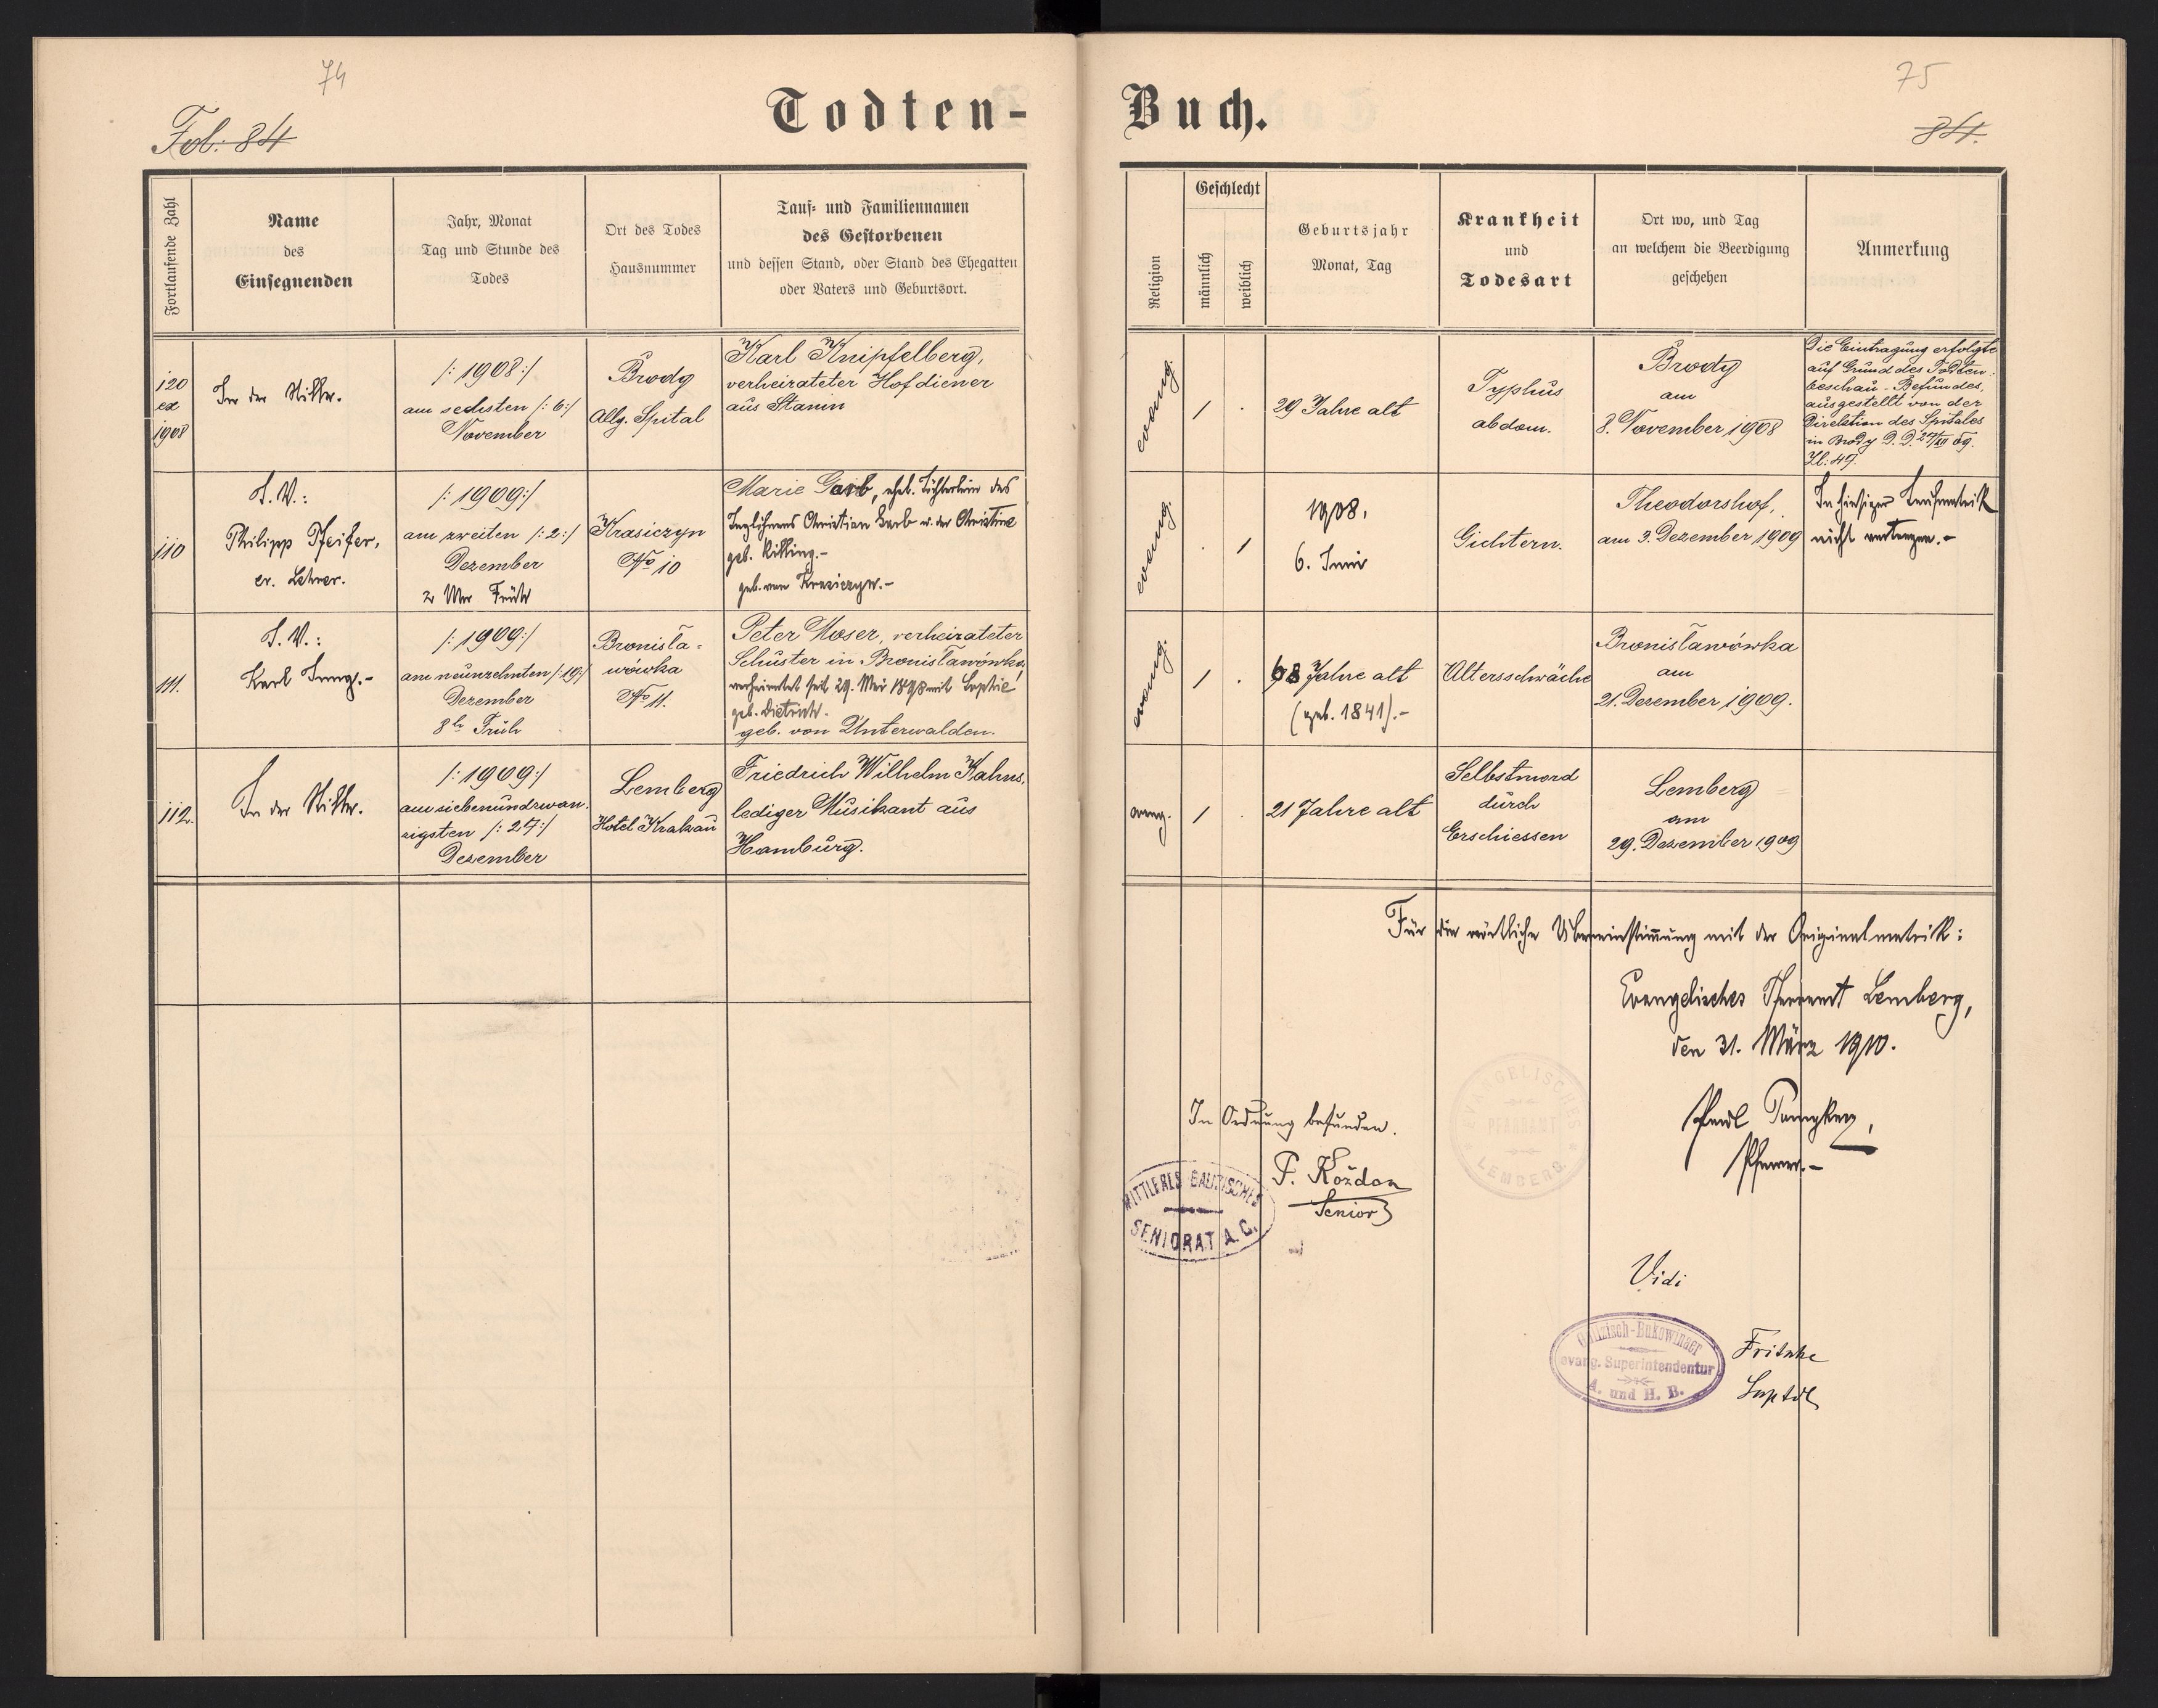 74
Todten-
Fol. 84
Fortlaufende Zahl
Name
des
Einsegnenden
Jahr, Monat
Tag und Stunde des
Todes
Ort des Todes
Hausnummer
Tauf- und Familiennamen
des Gestorbenen
und dessen Stand, oder Stand des Ehegatten
oder Vaters und Geburtsort.
120
ex
1908
In der Stille.
/:1908:/
am sechsten /:6:/
November
Brody
Allg. Spital
Karl Knipfelberg,
verheirateter Hofdiener
aus Stanin
110
I.V.:
Philipp Pfeifer,
ev. Lehrer.
/:1909:/
am zweiten /:2:/
Dezember
2 Uhr Früh
Krasiczyn
No 10
Marie Garb, ehel. Töchterlein des
Taglöhners Christian Garb u. der Christine
geb. Kissing.-
geb. von Krasiczyn.-
111.
I.V.:
Karl Jung.-
/:1909:/
am neunzehnten /:19:/
Dezember
8h Früh
Bronisła-
wówka
No 11.
Peter Moser, verheirateter
Schuster in Bronisławówka,
verheiratet seit 29. Mai 1898 mit Sophie
geb. Dietrich.
geb. von Unterwalden.
112.
In der Stille.
/:1909:/
am siebenundzwan-
zigsten /:27:/
Dezember
Lemberg
Hotel Krakau
Friedrich Wilhelm Kahns,
lediger Musikant aus
Hamburg.
75
Buch.
84.
Religion
Geschlecht
männlich
weiblich
Geburtsjahr
Monat, Tag
Krankheit
und
Todesart
Ort wo, und Tag
an welchem die Beerdigung
geschehen
Anmerkung
evang.
1
.
29 Jahre alt
Typhus
abdom.
Brody
am
8. November 1908
Die Eintragung erfolgte
auf Grund des Todten-
beschau-Befundes,
ausgestellt von der
Direktion des Spitales
in Brody D. D. 27/XI 09.
Zl: 47.
evang.
.
1
1908,
6. Juni
Gichtern.
Theodorshof,
am 3. Dezember 1909
In hiesiger Taufmatrik
nicht eingetragen.-
evang.
1
.
68 Jahre alt
(geb. 1841).-
Altersschwäche
Bronisławówka
am
21. Dezember 1909.
evang.
1
.
21 Jahre alt
Selbstmord
durch
Erschiessen
Lemberg
am
29. Dezember 1909
Für die wörtliche Übereinstimmung mit der Originalmatrik:
Evangelisches Pfarramt Lemberg,
den 31. März 1910.
Pfarrer.-
EVANGELISCHES
PFARRAMT
LEMBERG.
In Ordnung befunden.
P. Kożdon
Senior
MITTLERES GALIZISCHES
SENIORAT A. C.
Vidi
Galizisch-Bukowinaer
evang. Superintendentur
A. und H. B.
Fritsche
Suptdt